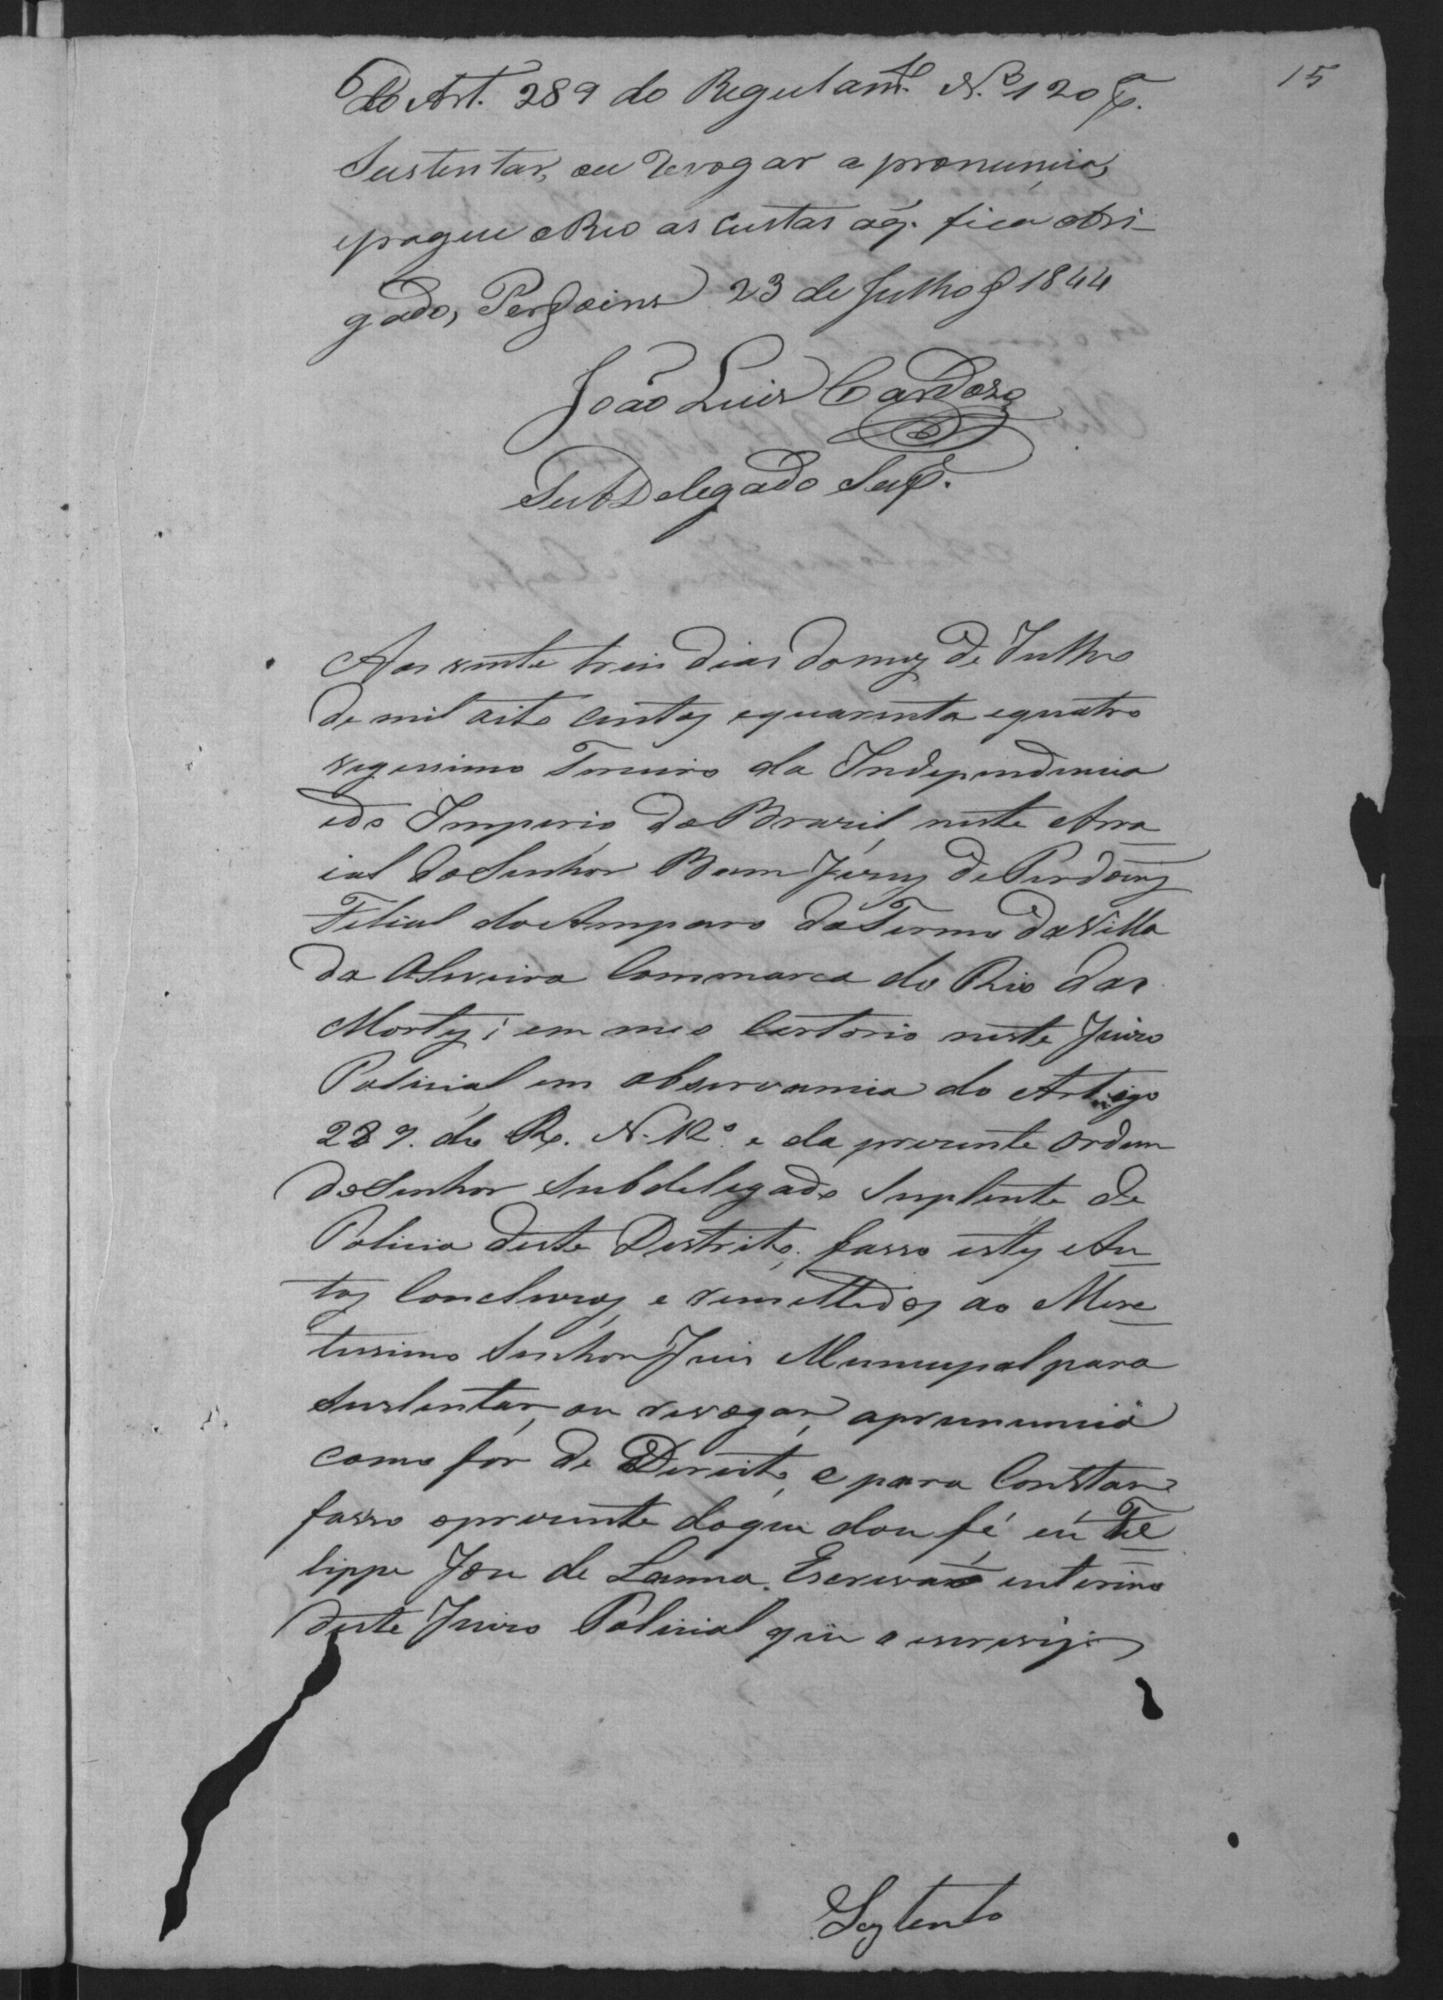 15
do Art. 289 do Regulamto. N.º 120 pa.
Sustentar, ou revogar a pronuncia,
epague o Reo as custas aq. fica obri-
gado, Perdoins 23 de Julho d 1844
João Luis Cardozo
SubDelegado Sup.
Aos vinte treis dias do mez de Julho
de mil oito centos equarenta equatro
vegessimo Terceiro da Independencia
edo Imperio do Brazil neste Arra
ial do Senhor Bom Jezus de Perdoins
Filial do Amparo do Termo da Villa
da Oliveira Commarca do Rio das
Mortes; em meo Cartorio neste Juizo
Policial em observancia do Artigo
289. do R. N. 120 e da prezente ordem
do Senhor Subdelegado Suplente de
Policia deste Destrito, fasso estes Au
tos Concluzos, e remettidos ao Mere
tissimo Senhor Juis Municipal para
Sustentar, ou revogar, apronuncia
como for de Direito, e para Constar
fasso oprezente doque dou fé, eu Fe
lippe Joze de Lanna Escrivão interino
deste Juizo Policial que o escrevi
Sustento